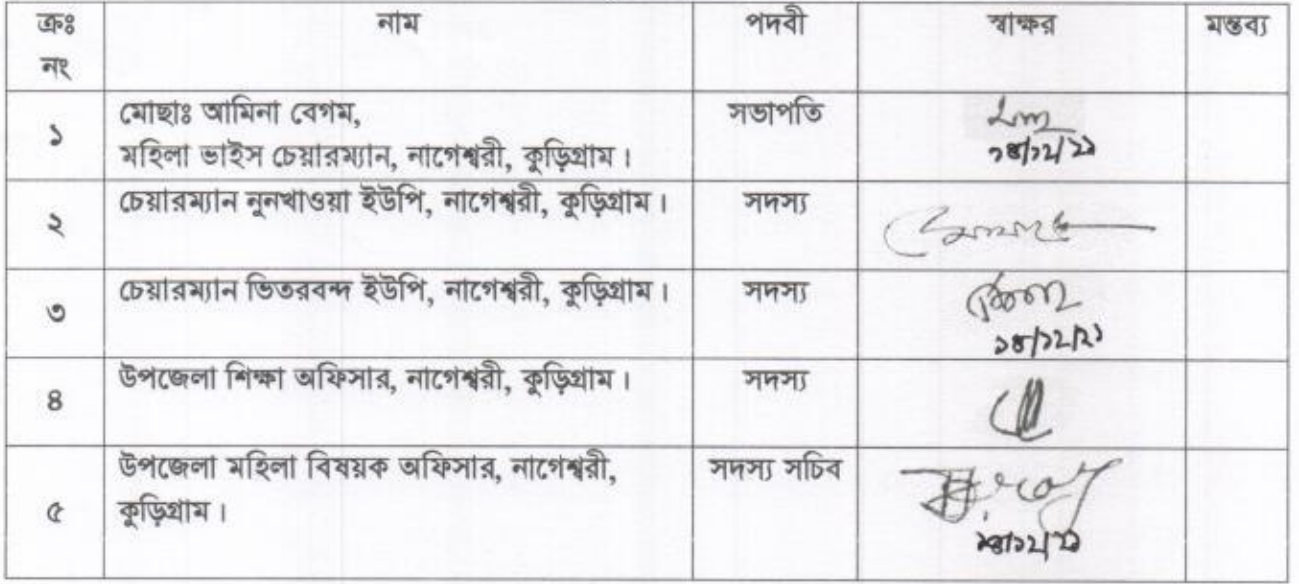 ক্রঃ নং নাম পদবী স্বাক্ষর মন্তব্য
১ মোছাঃ আমিনা বেগম, সভাপতি
মহিলা ভাইস চেয়ারম্যান, নাগেশ্বরী, কুড়িগ্রাম। ১৪/১২/২১
২ চেয়ারম্যান নুনখাওয়া ইউপি, নাগেশ্বরী, কুড়িগ্রাম। সদস্য
৩ চেয়ারম্যান ভিতরবন্দ ইউপি, নাগেশ্বরী, কুড়িগ্রাম। সদস্য
১৪/১২/২১
৪ উপজেলা শিক্ষা অফিসার, নাগেশ্বরী, কুড়িগ্রাম। সদস্য
৫ উপজেলা মহিলা বিষয়ক অফিসার, নাগেশ্বরী, সদস্য সচিব
কুড়িগ্রাম।
১৪/১২/২১